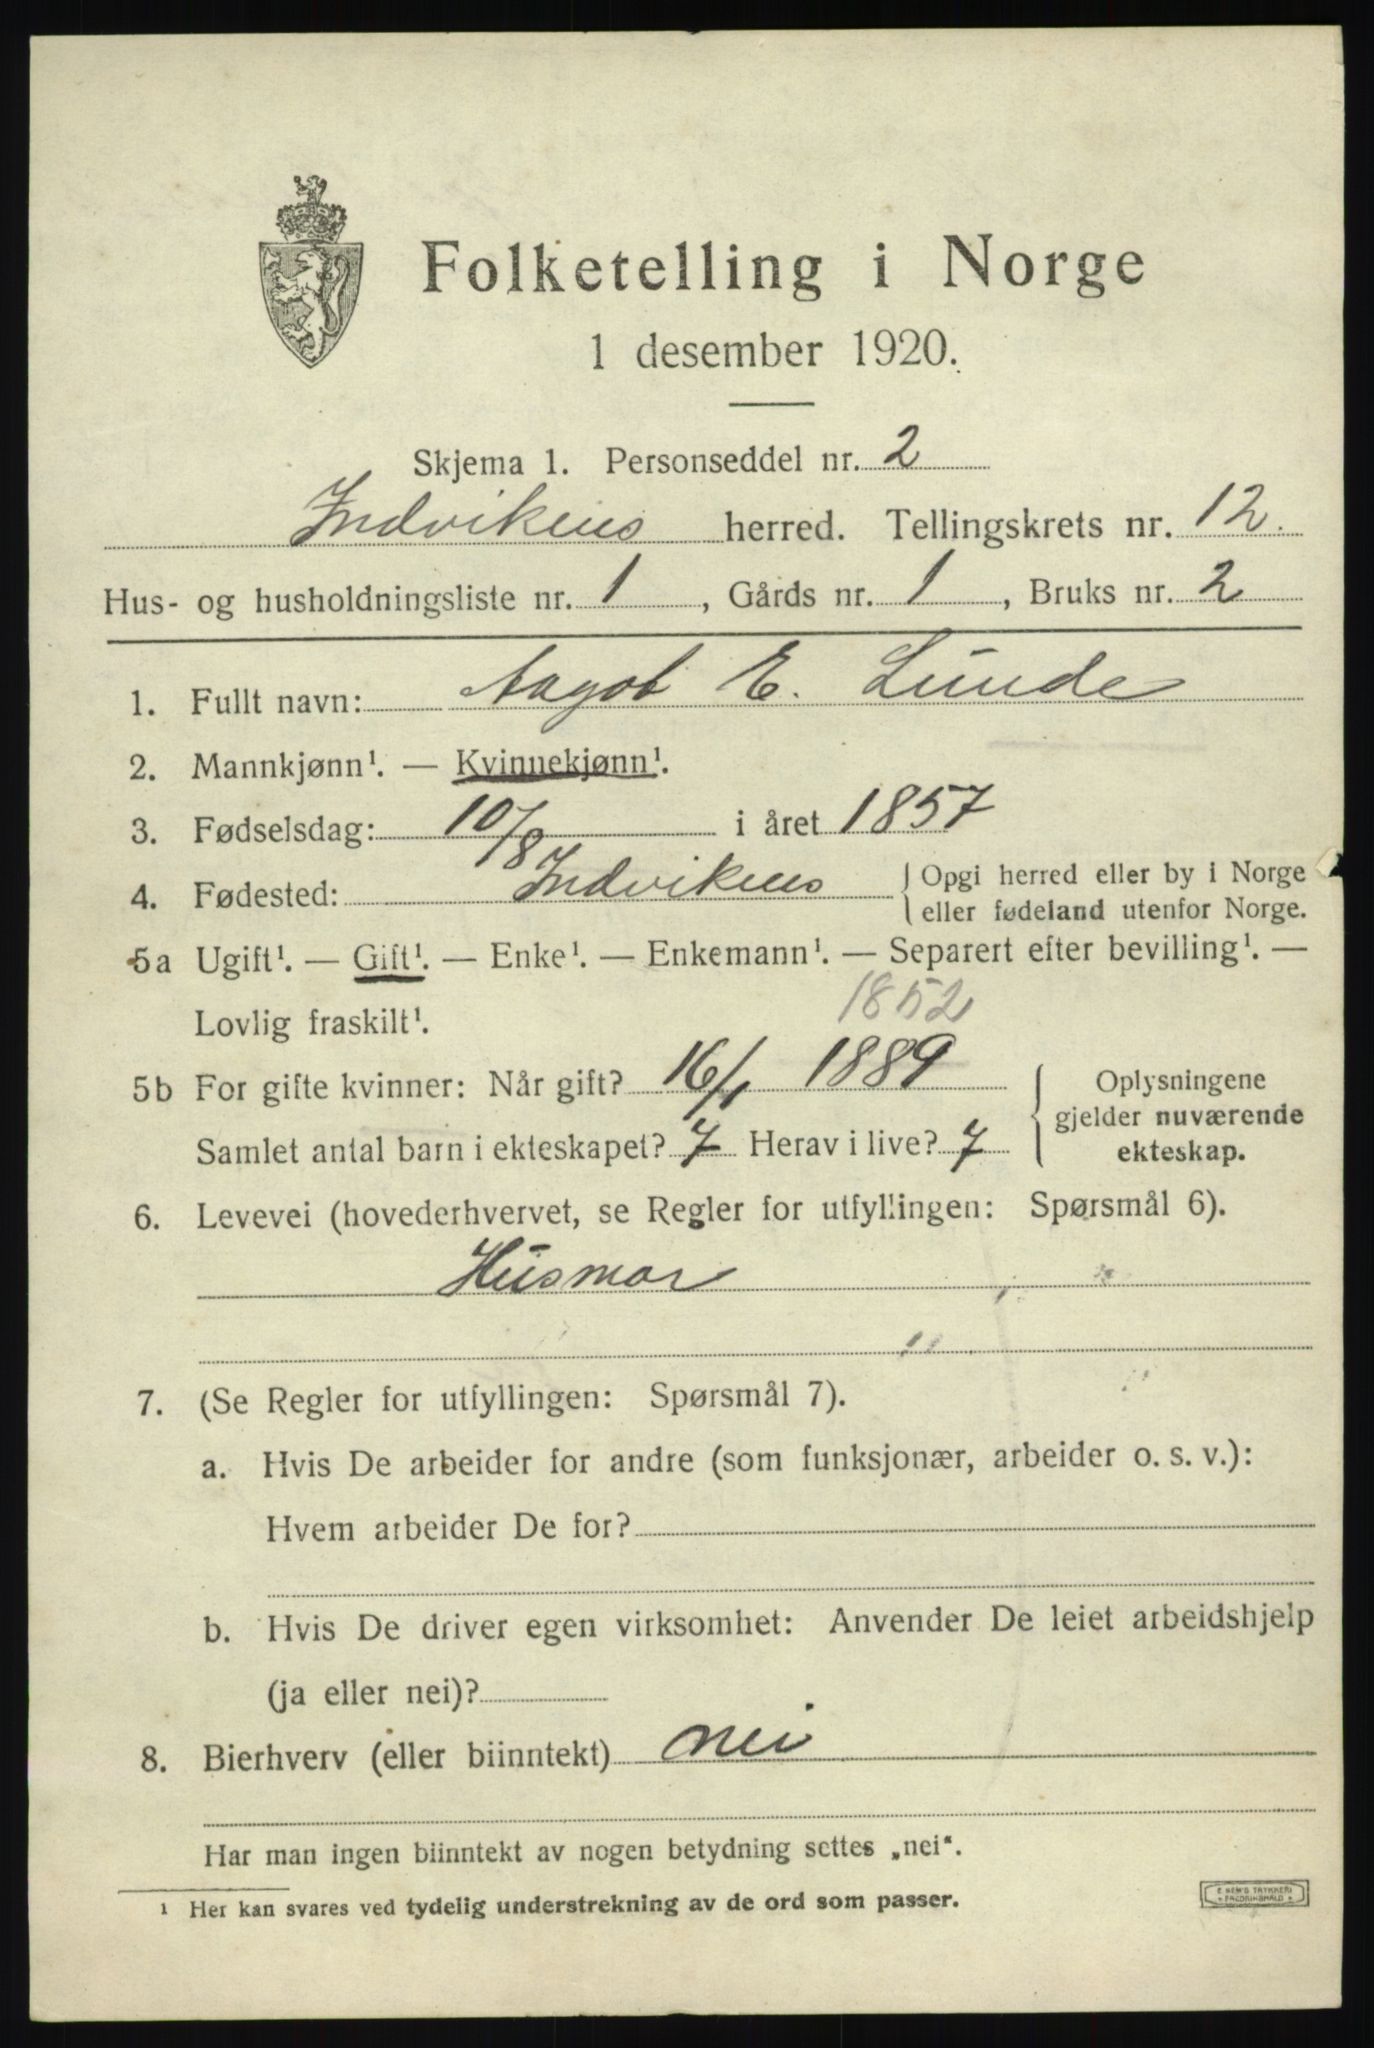 Folketelling i Norge
1 desember 1920.
Skjema 1. Personseddel nr. 2
Indvikens herred. Tellingskrets nr. 12.
Hus- og husholdningsliste nr. 1, Gårds nr. 1, Bruks nr. 2
1. Fullt navn: Aagot E. Lunde
2. Mannkjønn¹. — Kvinnekjønn¹.
3. Fødselsdag: 10/8 i året 1857
4. Fødested: Indvikens { Opgi herred eller by i Norge
eller fødeland utenfor Norge.
5a Ugift¹. — Gift¹. — Enke¹. — Enkemann¹. — Separert efter bevilling¹. —
Lovlig fraskilt¹. 1852
5b For gifte kvinner: Når gift? 16/1 1889
Samlet antal barn i ekteskapet? 7 Herav i live? 7
{ Oplysningene
gjelder nuværende
ekteskap.
6. Levevei (hovederhvervet, se Regler for utfyllingen: Spørsmål 6).
Husmor
7. (Se Regler for utfyllingen: Spørsmål 7).
a. Hvis De arbeider for andre (som funksjonær, arbeider o. s. v.):
Hvem arbeider De for?
b. Hvis De driver egen virksomhet: Anvender De leiet arbeidshjelp
(ja eller nei)?
8. Bierhverv (eller biinntekt) nei
Har man ingen biinntekt av nogen betydning settes „nei“.
¹ Her kan svares ved tydelig understrekning av de ord som passer.
E. SEM'S TRYKKERI
FREDRIKSHALD